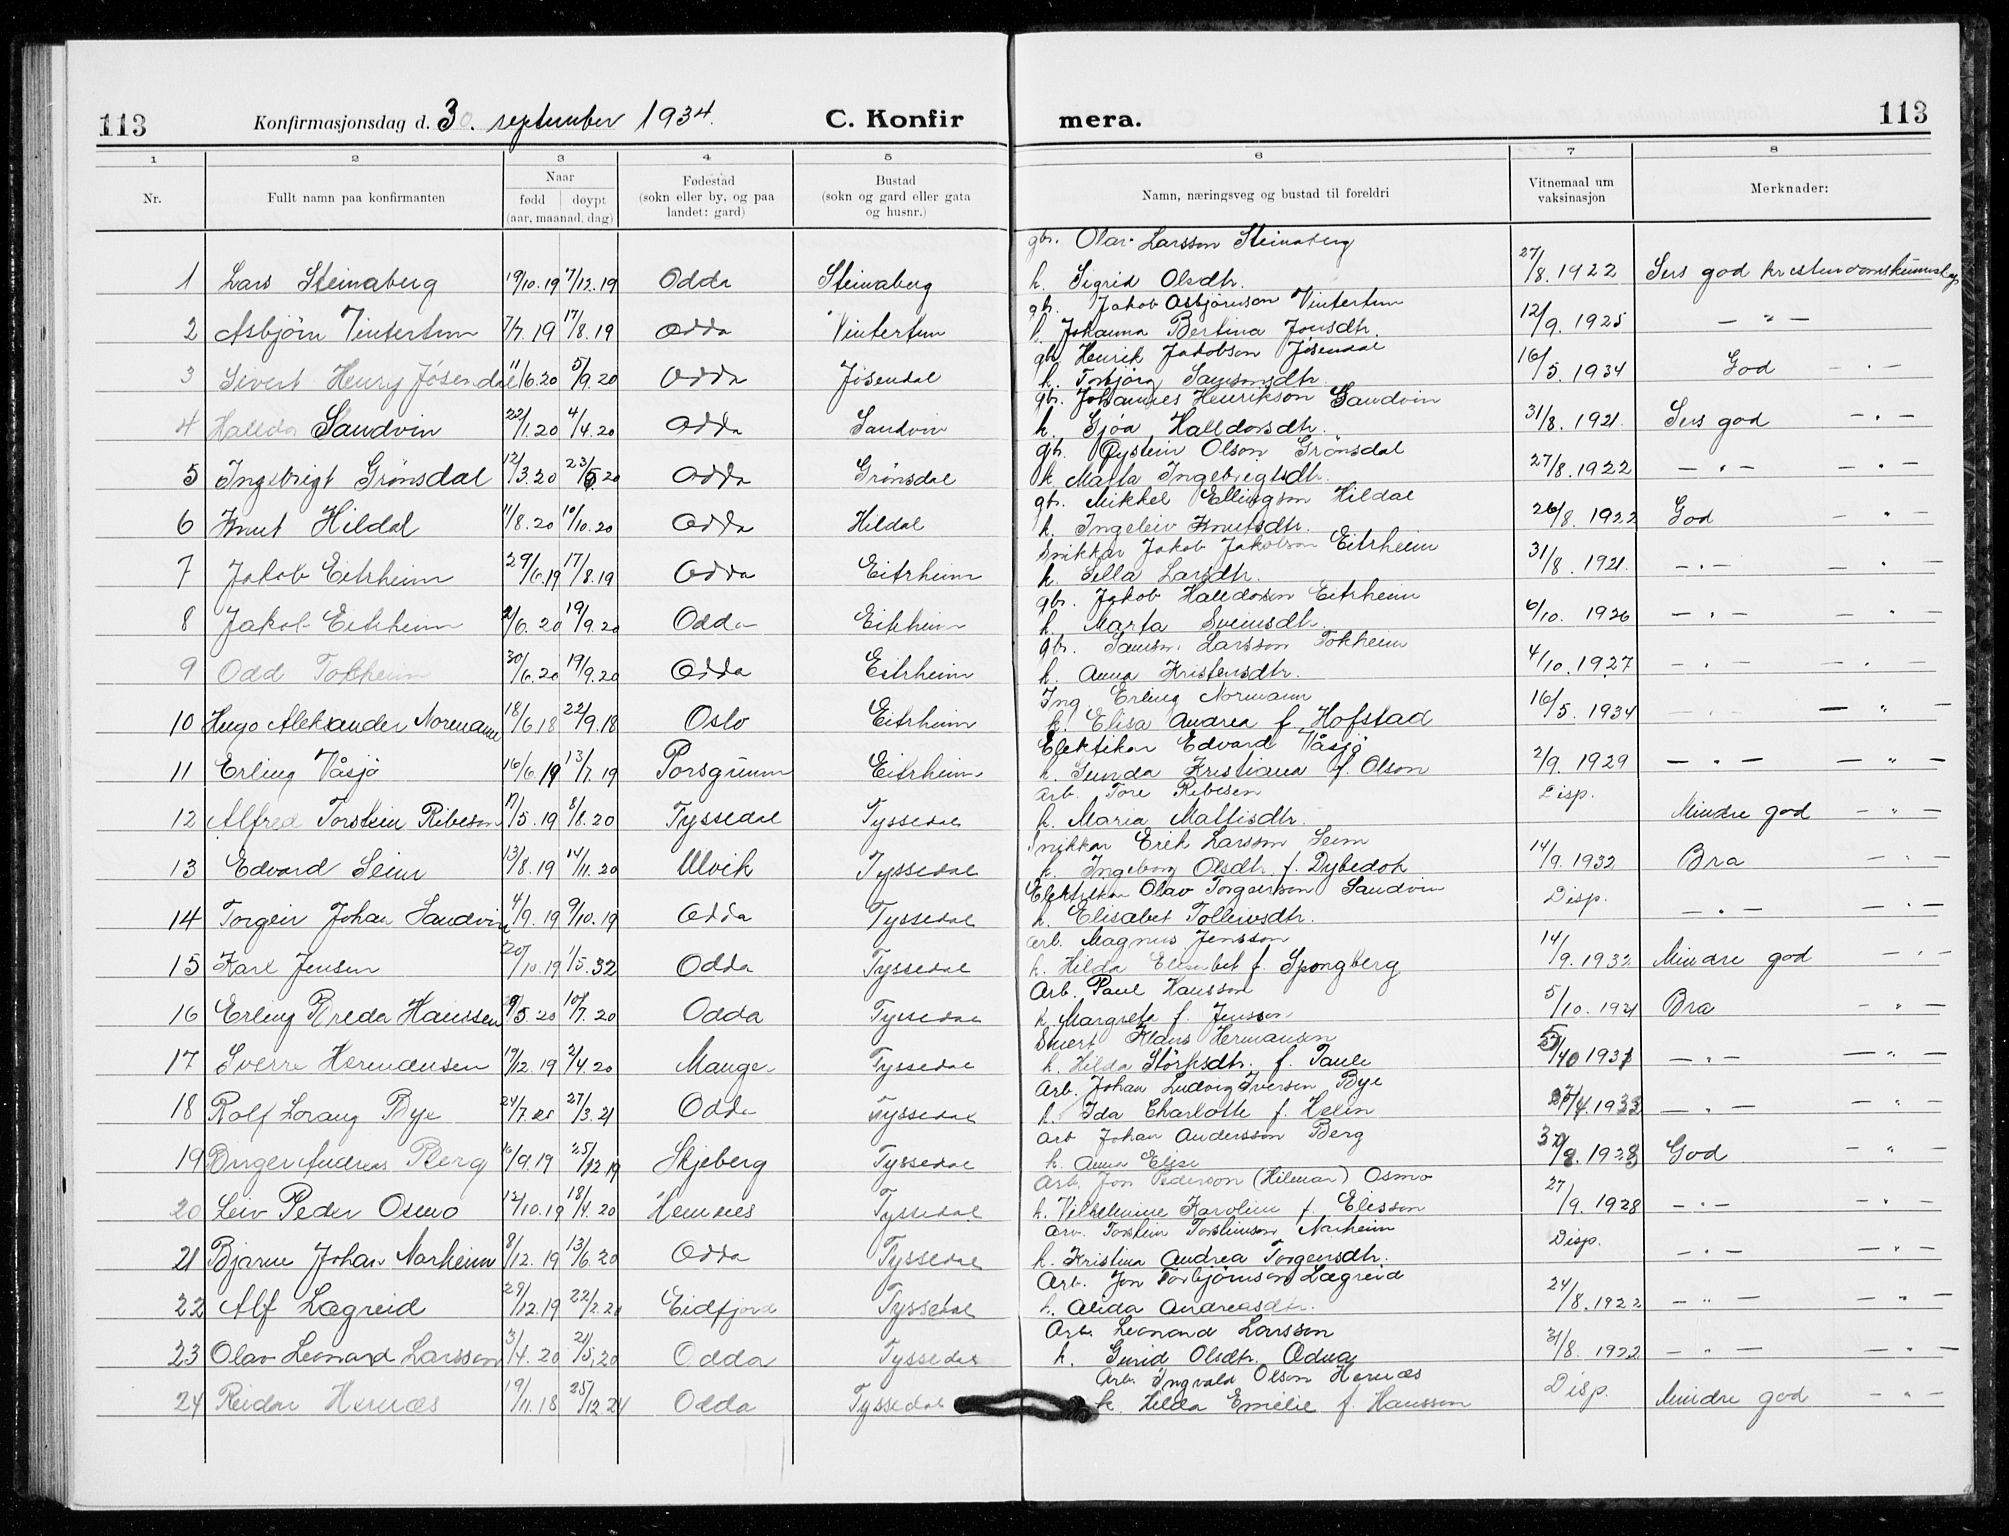 113 Konfirmasjonsdag d. 30. september 1934. C. Konfir mera. 113
1 2 3 4 5 6 7 8
Nr. Fullt namn paa konfirmanten Naar fødd døypt (aar, maanad, dag) Fødestad (sokn eller by, og paa landet: gard) Bustad (sokn og gard eller gata og husnr.) Namn, næringsveg og bustad til foreldri Vitnemaal um vaksinasjon Merknader:
gbr. Olav Larsson Steinaberg
1 Lars Steinaberg 19/10.19 7/12.19 Odda Steinaberg k. Sigrid Olsdtr. 27/8.1922 Sers god kristendomskunnskap
gbr. Jakob Asbjørnson Vintertun
2 Asbjørn Vintertun 7/7.19 17/8.19 Odda Vintertun k. Johanna Bertina Jonsdtr. 12/9.1925 — " —
gbr. Henrik Jakobson Jøsendal
3 Sivert Henry Jøsendal 11/6.20 5/9.20 Odda Jøsendal k. Torbjørg Samsonsdtr. 16/5.1934 God — " —
gbr. Johannes Henrikson Sandvin
4 Halldor Sandvin 22/1.20 4/4.20 Odda Sandvin k. Gjøa Halldorsdtr. 31/8.1921. Sers god — " —
gbr. Øystein Olson Grønsdal
5 Ingebrigt Grønsdal 12/3.20 23/5.20 Odda Grønsdal k Marta Ingebrigtsdtr. 27/8.1922 — " — — " —
gbr. Mikkel Ellingson Hildal
6 Knut Hildal 11/8.20 10/10.20 Odda Hildal k. Ingeleiv Knutsdtr. 26/8.1922 God — " —
Snikkar Jakob Jakobson Eitrheim
7 Jakob Eitrheim 29/6.19 17/8.19 Odda Eitrheim k. Sella Larsdtr. 31/8.1921. — " — — " —
gbr. Jakob Halldorson Eitrheim
8 Jakob Eitrheim 2/6.20 19/9.20 Odda Eitrheim k. Marta Sveinsdtr. 6/10.1926 — " — — " —
gbr. Samson Larsson Tokheim
9 Odd Tokheim 30/6.20 19/9.20 Odda Eitrheim k. Anna Kristensdtr. 4/10.1927 — " — — " —
Ing. Erling Normann
10 Hugo Aleksander Normann 18/6.18 22/9.18 Oslo Eitrheim k. Elisa Andrea f. Hofstad 16/5.1934 — " — — " —
Elektikar Edvard Våsjø
11 Erling Våsjø 16/6.19 13/7.19 Porsgrunn Eitrheim k. Gunda Kristiana f. Olson 2/9.1929 — " — — " —
Arb. Tore Ribesen
12 Alfred Torstein Ribeson 17/5.19 8/8.20 Tyssedal Tyssedal k. Maria Mattisdtr. Disp. Mindre god — " —
Snikkar Erik Larsson Seim
13 Edvard Seim 13/8.19 14/11.20 Ulvik Tyssedal k. Ingeborg Olsdtr. f. Dybedok 14/9.1932 Bra — " —
Elektrikar Olav Torgeirson Sandvin
14 Torgeir Johan Sandvin 4/9.19 9/10.19 Odda Tyssedal k. Elisabet Tolleivsdtr. Disp. — " — — " —
Arb. Magnus Jensson
15 Karl Jensen 20/10.19 1/5.32 Odda Tyssedal k. Hilda Elisabet f. Spongberg 14/9.1932 Mindre god — " —
Arb. Paul Hansson
16 Erling Reda Hanssen 9/5.20 10/7.20 Odda Tyssedal k. Margrete f. Jensson 5/10.1921 Bra — " —
Stuert Klaus Hermansen
17 Sverre Hermansen 17/12.19 2/4.20 Manger Tyssedal k. Hilda Størksdtr. f. Paule 5/10 1931 — " — — " —
Arb. Johan Ludvig Iversen Bye
18 Rolf Lorang Bye 24/7.20 27/3.21 Odda Tyssedal k. Ida Charlotte f. Helin /4.1933 — " — — " —
Arb Johan Andersson Berg
19 Andreas Berg 16/9.19 25/12.19 Skjeberg Tyssedal k. Anna Elise 1928 God — " —
Arb. Jon Pederson (Hilmar) Osmo
20 Leiv Peder Osmo 12/10.19 18/4.20 Hemnes Tyssedal k. Vilhelmine Karoline f. Elisson 27/9.1928 — " — — " —
Arb. Torstein Torsteinson Norheim
21 Bjarne Johan Norheim 8/12.19 13/6.20 Odda Tyssedal k. Kristina Andrea Torgersdtr. Disp. — " — — " —
Arb. Jon Torbjørnson Lægreid
22 Alf Lægreid 29/12.19 22/2.20 Eidfjord Tyssedal k. Alida Andreasdtr. 24/8.1922 — " — — " —
Arb. Leonard Larsson
23 Olav Leonard Larsson 3/4.20 21/5.20 Odda Tyssedal k. Gurid Olsdtr. Odda 31/8.1922 — " — — " —
Arb. Ingvald Olson Hernæs
24 Reidar Hernæs 19/11.18 25/12.24 Odda Tyssedal k. Hilda Emelie f. Hansson Disp. Mindre god — " —